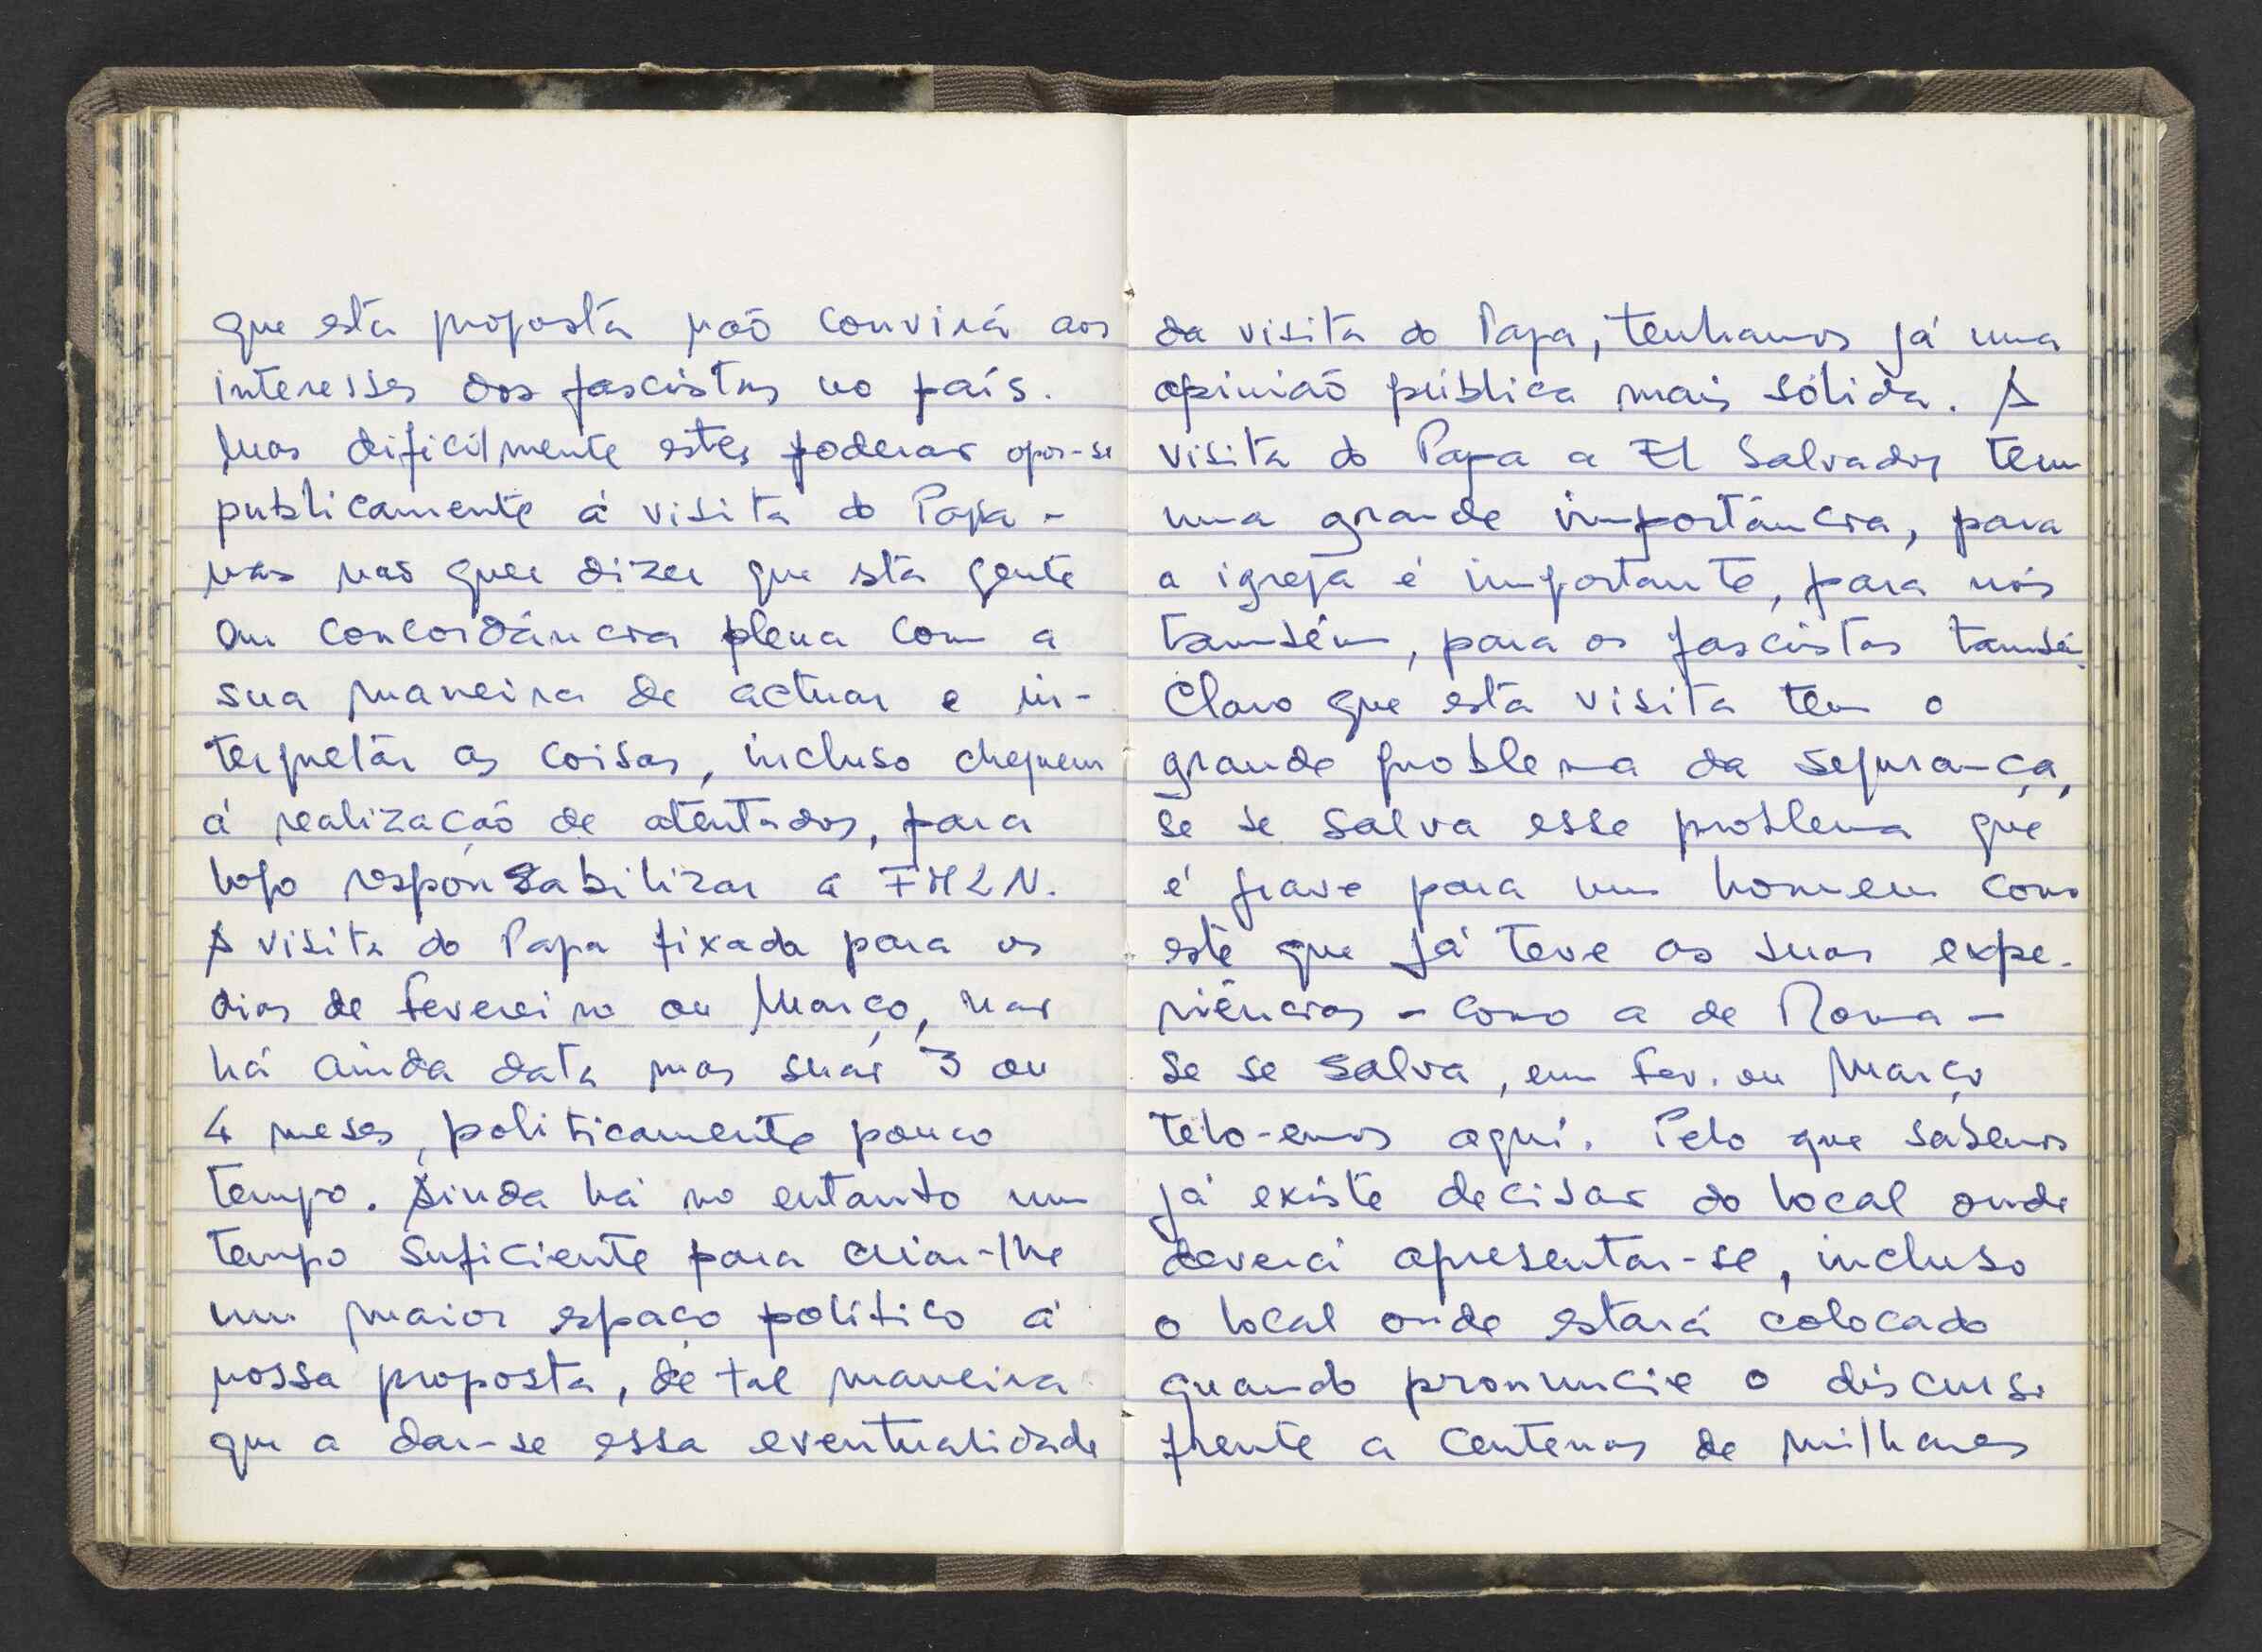 que esta proposta naõ convirá aos
interesses dos fascistas no país.
Mas dificilmente estes poderaõ opor-se
publicamente á visita do Papa -
mas naõ quer dizer que sta gente
em concordância plena com a
sua maneira de actuar e in-
terpretár as coisas, incluso cheguem
á realizaçaõ de atentados, para
logo responsabilizar a FMLN.
A visita do Papa fixada para os
dias de fevereiro ou Março, naõ
há ainda data mas seraõ 3 ou
4 meses, politicamente pouco
tempo. Ainda há no entanto um
tempo suficiente para criar-lhe
um maior espaço político á
nossa proposta, de tal maneira
que a dar-se essa eventualidade
da visita do Papa, tenhamos já uma
opiniaõ pública mais sólida. A
visita do Papa a El Salvador tem
uma grande importância, para
a igreja é importante, para nós
também, para os fascistas també.
Claro que esta visita tem o
grande problema da segurança,
se se salva esse problema que
é grave para um homem como
este que já teve as suas expe-
riências - como a de Roma -
se se salva, em fev. ou Março
telo-emos aqui. Pelo que sabemos
já existe decisaõ do local onde
deverá apresentar-se, incluso
o local onde estará colocado
quando pronuncie o discurso
frente a centenas de milhares